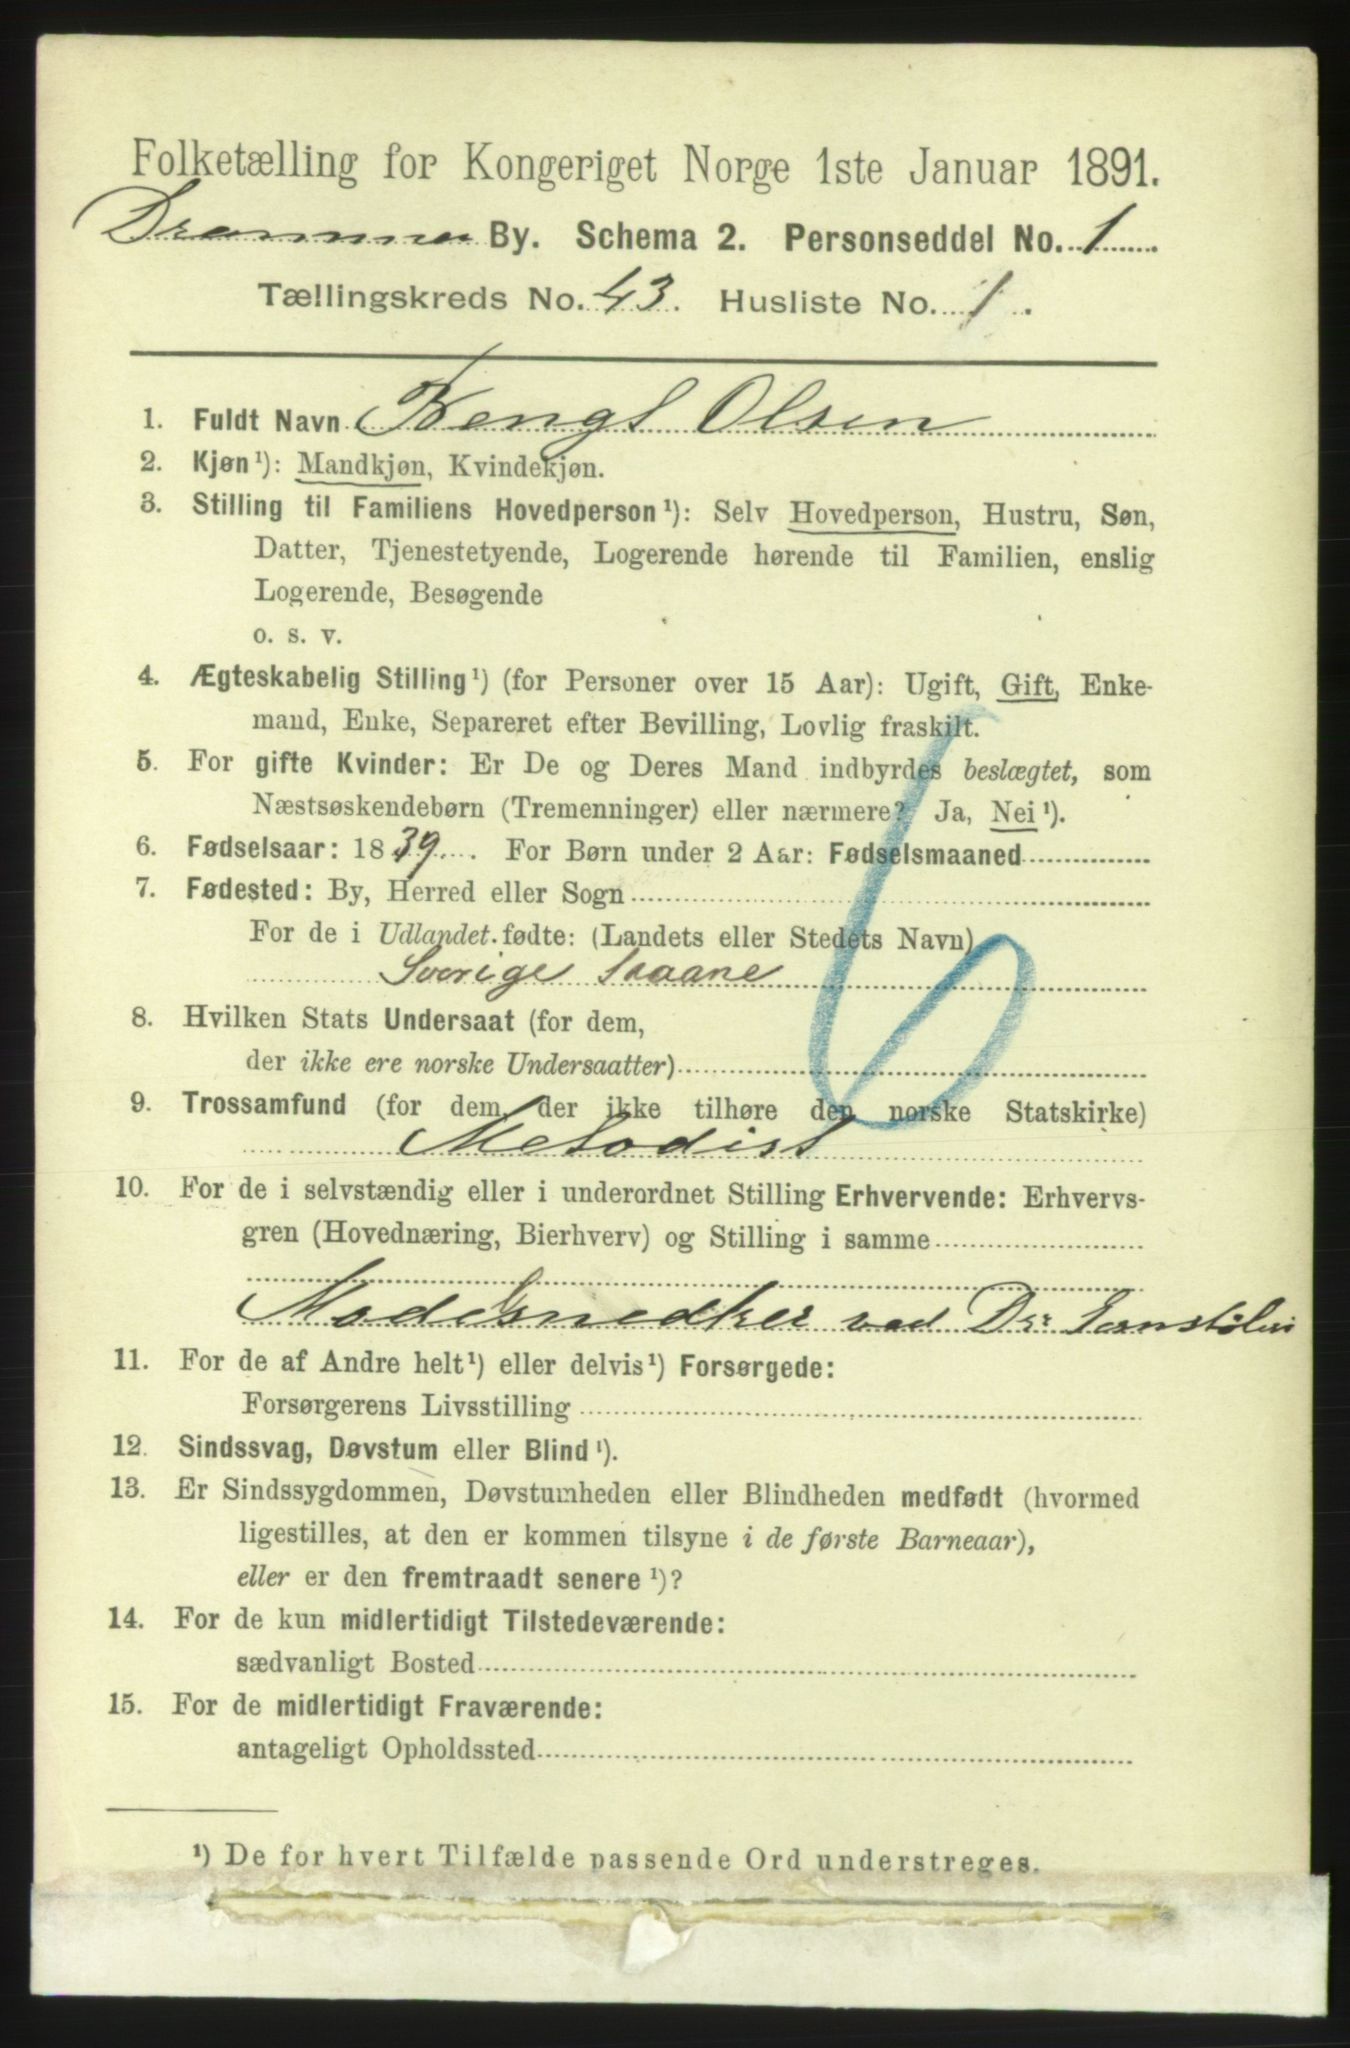 Folketælling for Kongeriget Norge 1ste Januar 1891.
Drammen By. Schema 2. Personseddel No. 1
Tællingskreds No. 43. Husliste No. 1.
1. Fuldt Navn Bengt Olsen
2. Kjøn¹): Mandkjøn, Kvindekjøn.
3. Stilling til Familiens Hovedperson¹): Selv Hovedperson, Hustru, Søn,
Datter, Tjenestetyende, Logerende hørende til Familien, enslig
Logerende, Besøgende
o. s. v.
4. Ægteskabelig Stilling¹) (for Personer over 15 Aar): Ugift, Gift, Enke-
mand, Enke, Separeret efter Bevilling, Lovlig fraskilt.
5. For gifte Kvinder: Er De og Deres Mand indbyrdes beslægtet, som
Næstsøskendebørn (Tremenninger) eller nærmere? Ja, Nei¹).
6. Fødselsaar: 1839. For Børn under 2 Aar: Fødselsmaaned
7. Fødested: By, Herred eller Sogn
For de i Udlandet fødte: (Landets eller Stedets Navn)
Sverige Skaane
8. Hvilken Stats Undersaat (for dem,
der ikke ere norske Undersaatter)
9. Trossamfund (for dem, der ikke tilhøre den norske Statskirke)
Metodist
10. For de i selvstændig eller i underordnet Stilling Erhvervende: Erhvervs-
gren (Hovednæring, Bierhverv) og Stilling i samme
Modelsnedker ved Dr. Jernstøberi
11. For de af Andre helt¹) eller delvis¹) Forsørgede:
Forsørgerens Livsstilling
12. Sindssvag, Døvstum eller Blind¹).
13. Er Sindssygdommen, Døvstumheden eller Blindheden medfødt (hvormed
ligestilles, at den er kommen tilsyne i de første Barneaar),
eller er den fremtraadt senere¹)?
14. For de kun midlertidigt Tilstedeværende:
sædvanligt Bosted
15. For de midlertidigt Fraværende:
antageligt Opholdssted
¹) De for hvert Tilfælde passende Ord understreges.